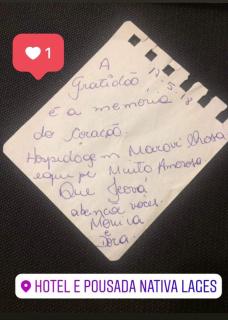 1
A
Gratidão 19.5.18
é a memoria
do Coração.
Hospidage m Maravilhosa
equi pe Muito Amorosa
Que Jeová
abencoa voces.
Mônica
e
HOTEL E POUSADA NATIVA LAGES